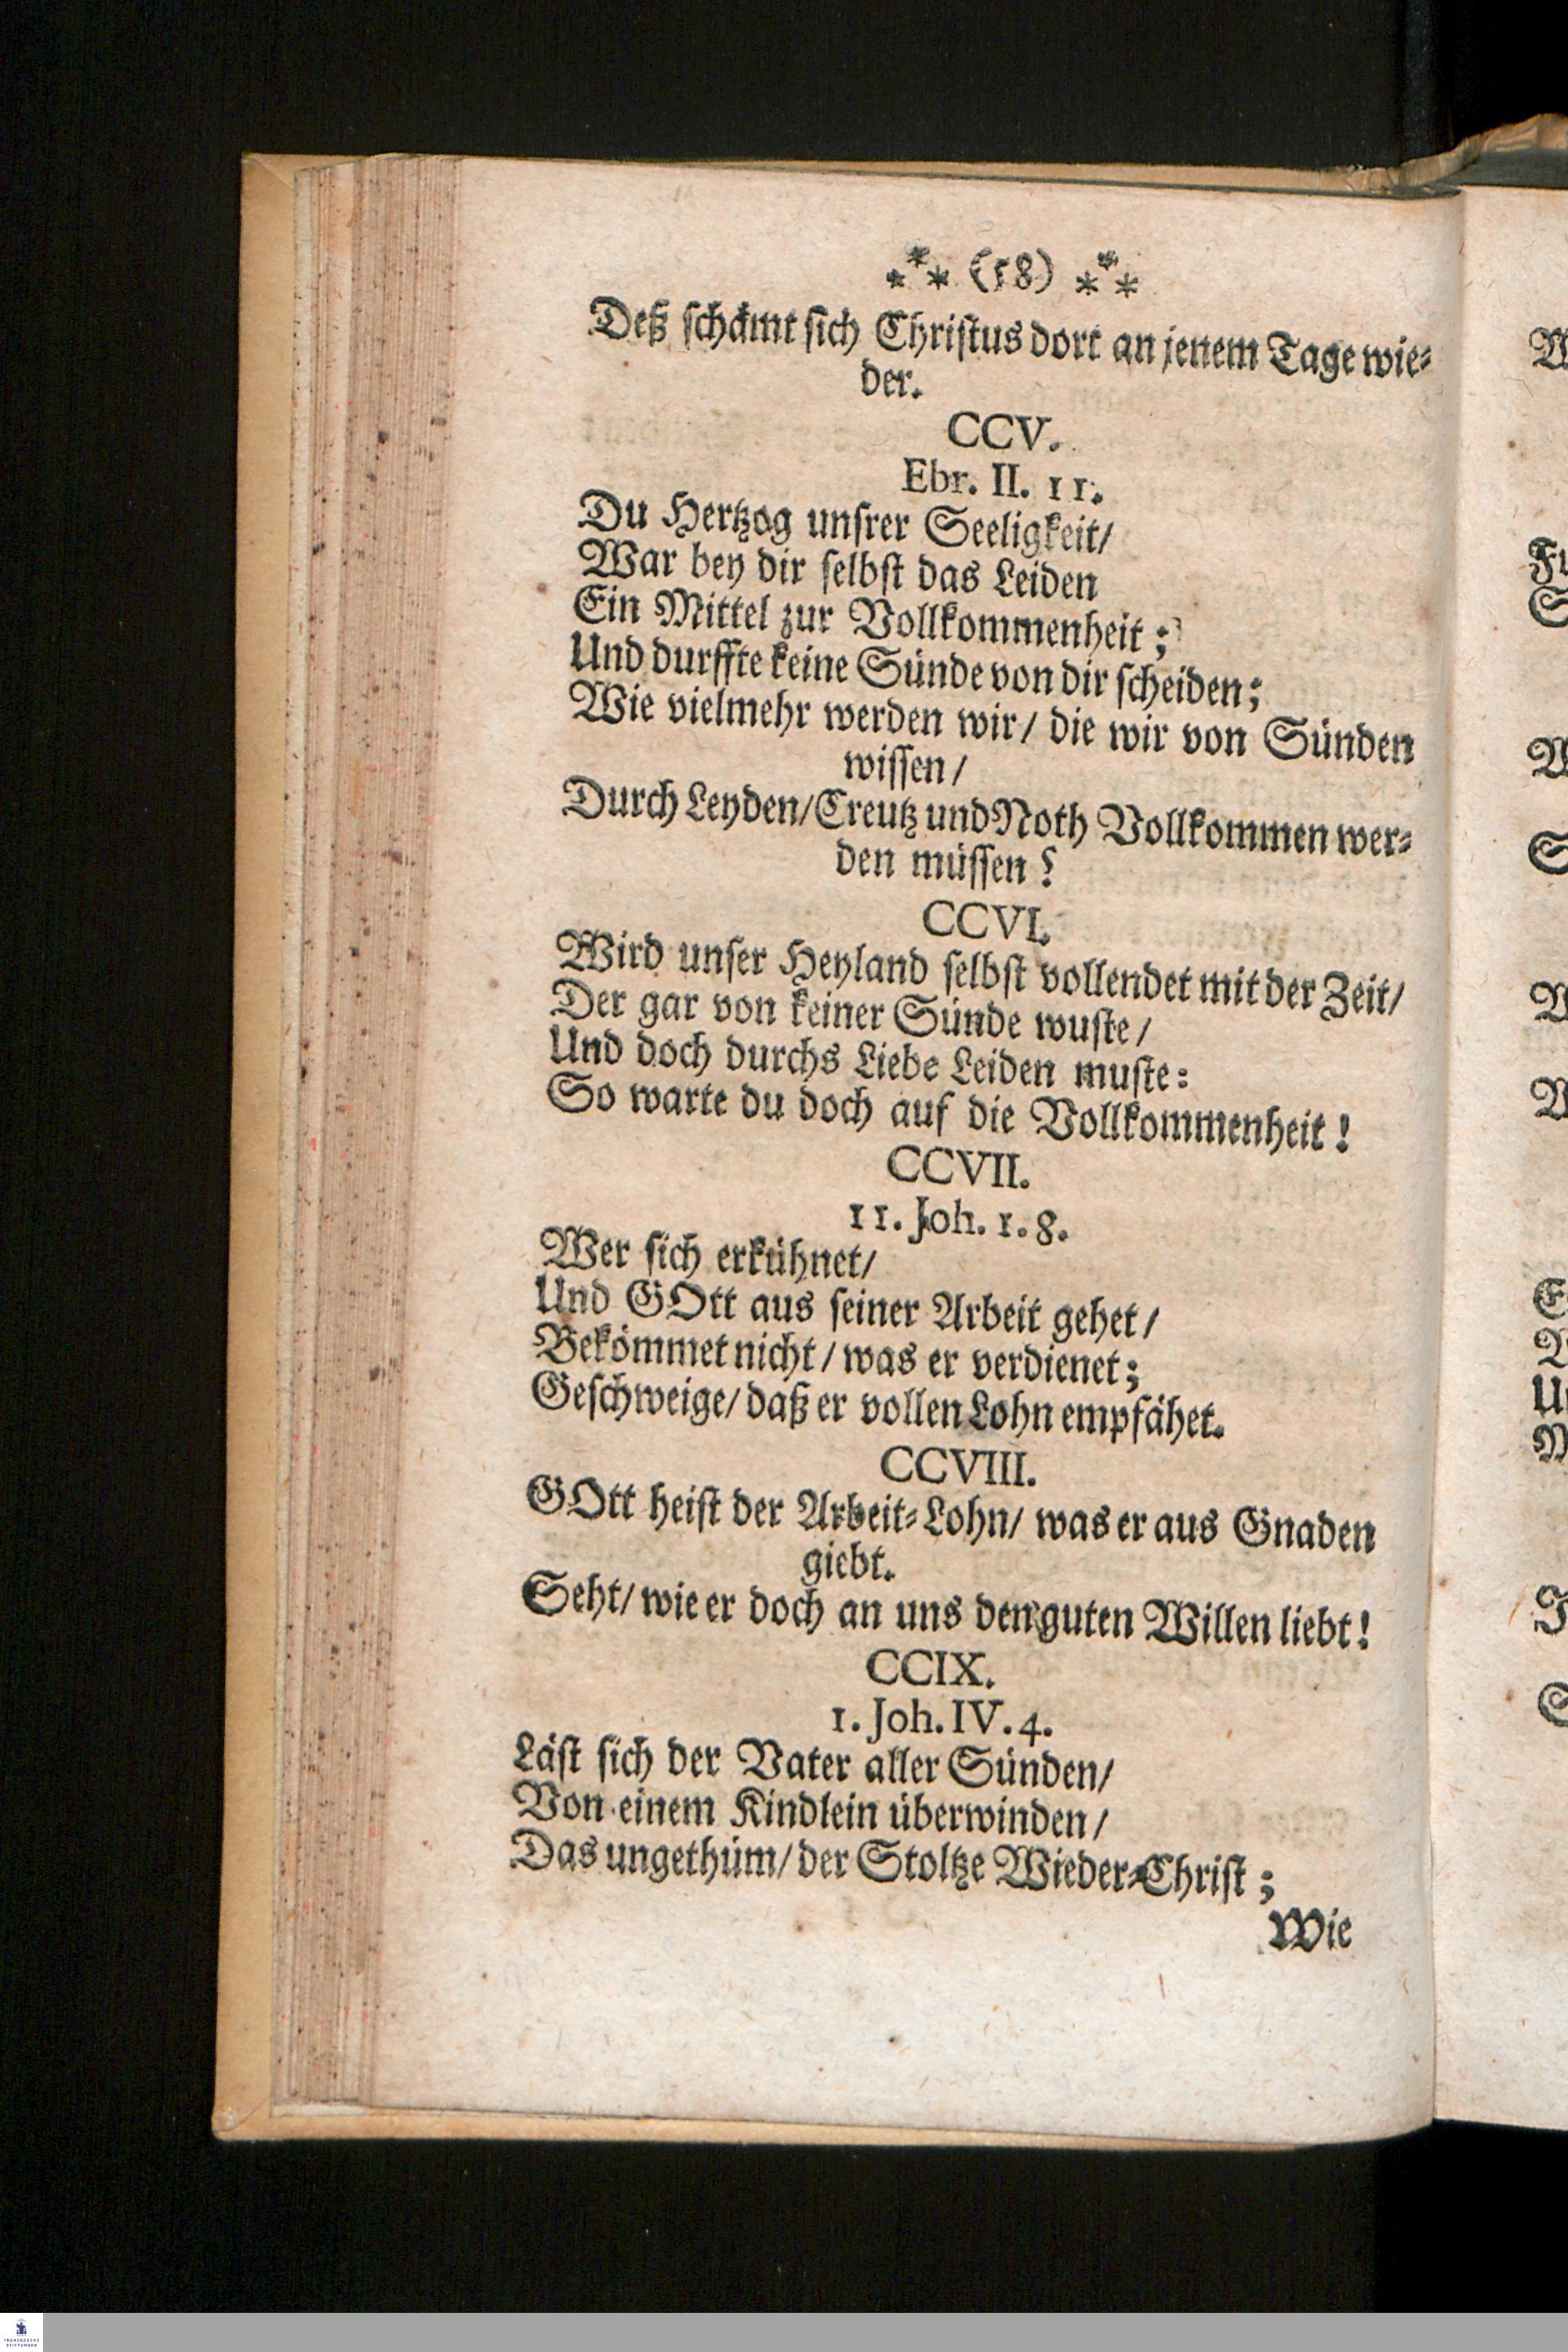 *** (58) ***
Deß schämt sich Christus dort an jenem Tage wie=
der.
CCV.
Ebr. II. 11.
Du Hertzog unsrer Seeligkeit/
War bey dir selbst das Leiden
Ein Mittel zur Vollkommenheit;
Und durffte keine Sünde von dir scheiden;
Wie vielmehr werden wir/ die wir von Sünden
wissen/
Durch Leyden/ Creutz und Noth Vollkommen wer=
den müssen?
CCVI.
Wird unser Heyland selbst vollendet mit der Zeit/
Der gar von keiner Sünde wuste/
Und doch durchs Liebe Leiden muste:
So warte du doch auf die Vollkommenheit!
CCVII.
11. Joh. 1. 8.
Wer sich erkühnet/
Und GOtt aus seiner Arbeit gehet/
Bekömmet nicht/ was er verdienet;
Geschweige/ daß er vollen Lohn empfähet.
CCVIII.
GOtt heist der Arbeit=Lohn/ was er aus Gnaden
giebt.
Seht/ wie er doch an uns den guten Willen liebt!
CCIX.
1. Joh. IV. 4.
Läst sich der Vater aller Sünden/
Von einem Kindlein überwinden/
Das ungethüm/ der Stoltze Wieder=Christ;
Wie
FRANCKESCHE
STIFTUNGEN